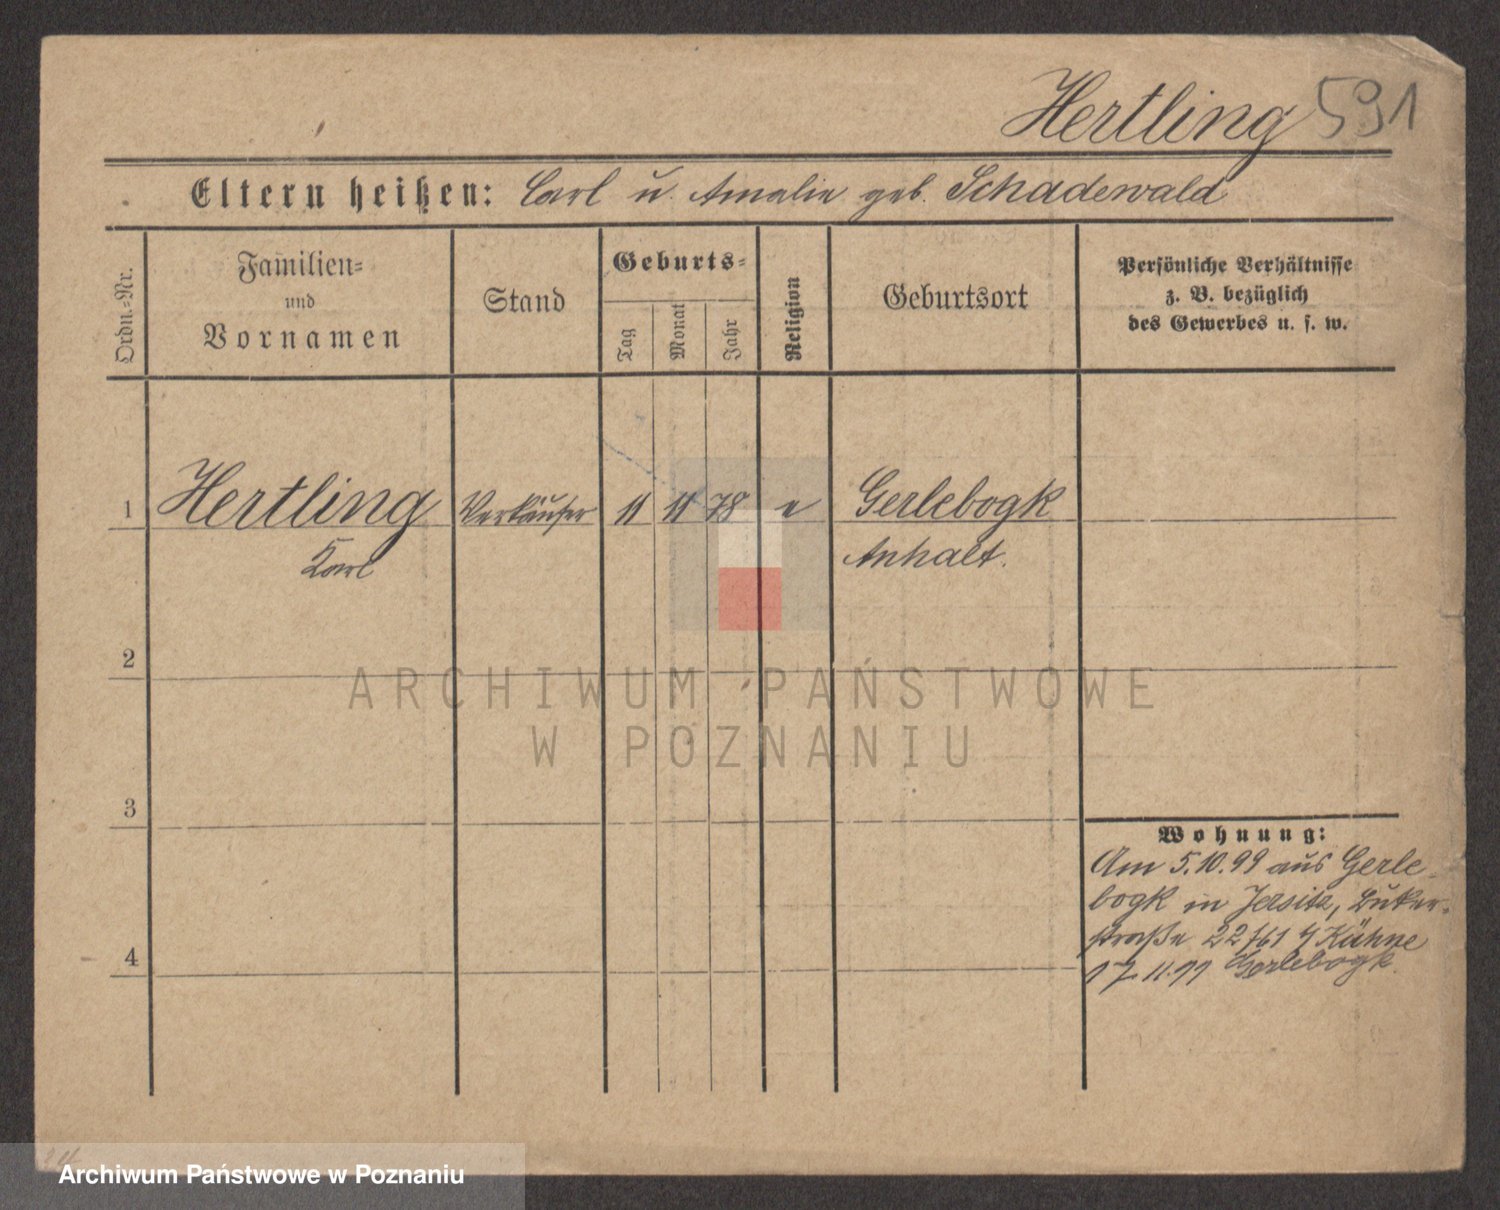 Hertling 591
Eltern heißen: Carl u. Amalie geb. Schadewald
Ordn.-Nr.
Familien-
und
Vornamen
Stand
Geburts-
Tag
Monat
Jahr
Religion
Geburtsort
Persönliche Verhältnisse
z. B. bezüglich
des Gewerbes u. s. w.
1 Hertling Verkäufer 11 11 78 e Gerlebogk
Karl Anhalt.
2
ARCHIWUM PAŃSTWOWE
W POZNANIU
3
Wohnung:
Am 5.10.99 aus Gerle-
bogk in Jersitz,
straße 22 Kühne
4
17.11.99 Gerlebogk.
Archiwum Państwowe w Poznaniu